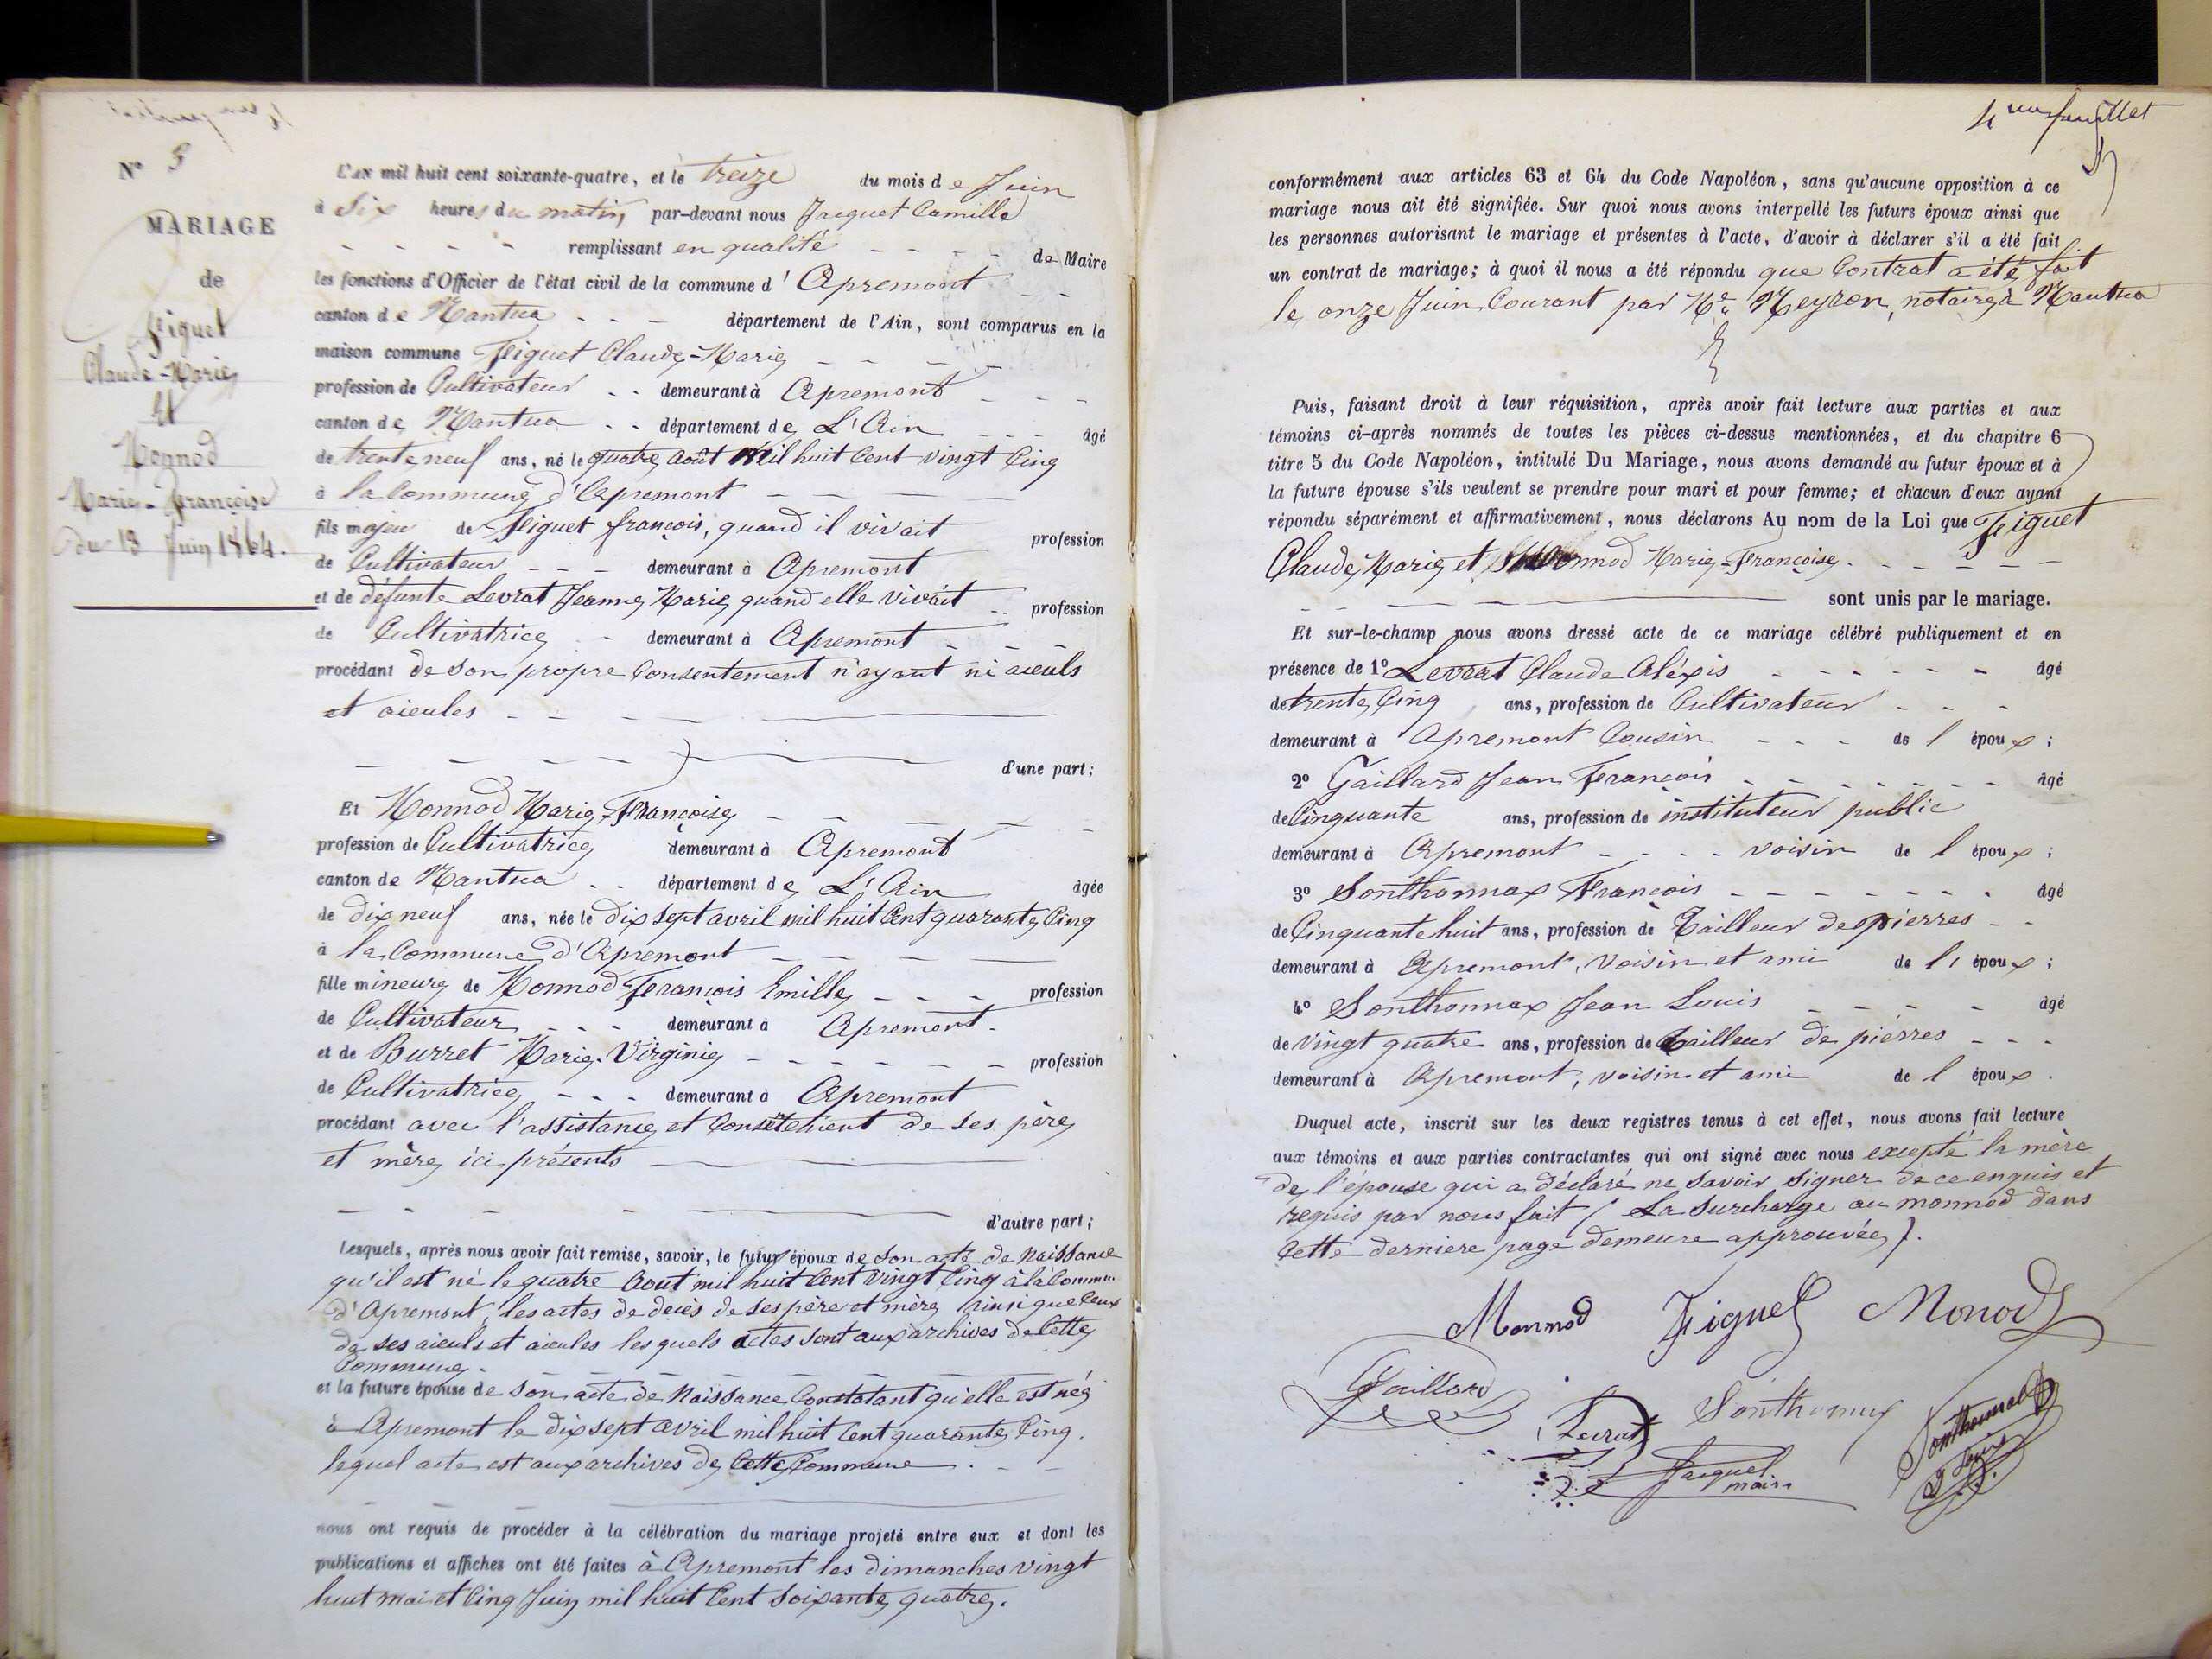 N° 3
MARIAGE
de
Figuet
Claude-Marie
et
Monnod
Marie-Françoise
du 13 Juin 1864.
L'AN mil huit cent soixante-quatre, et le treize du mois de Juin
à Six heures du matin par-devant nous Jacquet Camille
remplissant en qualité de Maire
les fonctions d'Officier de l'état civil de la commune d'Apremont
canton de Nantua département de l'Ain, sont comparus en la
maison commune Figuet Claude-Marie
profession de Cultivateur demeurant à Apremont
canton de Nantua département de L'Ain âgé
de trente neuf ans, né le quatre Août Mil huit Cent vingt Cinq
à la Commune d'Apremont
fils majeur de Figuet françois, quand il vivait profession
de Cultivateur demeurant à Apremont
et de défunte Levrat Jeanne Marie quand elle vivait profession
de Cultivatrice demeurant à Apremont
procédant de son propre Consentement n'ayant ni aïeuls
et aïeules
d'une part;
Et Monnod Marie-Françoise
profession de Cultivatrice demeurant à Apremont
canton de Nantua département de L'Ain âgée
de dix neuf ans, née le dix sept avril mil huit Cent quarante Cinq
à la Commune d'Apremont
fille mineure de Monnod François Emille profession
de Cultivateur demeurant à Apremont.
et de Burret Marie-Virginie profession
de Cultivatrice demeurant à Apremont
procédant avec l'assistance et Consetement de ses père
et mère ici présents
d'autre part;
Lesquels, après nous avoir fait remise, savoir, le futur époux de son acte de Naissance
qu'il est né le quatre Aout mil huit Cent vingt Cinq à la Commune
d'Apremont, les actes de decès de ses père et mère ainsi que Ceux
de ses aïeuls et aïeules lesquels actes sont aux archives de Cette
Commune.
et la future épouse de son acte de Naissance Constatant qu'elle est née
à Apremont le dix sept avril mil huit Cent quarante Cinq.
lequel acte est aux archives de Cette Commune.
nous ont requis de procéder à la célébration du mariage projeté entre eux et dont les
publications et affiches ont été faites à Apremont les dimanches vingt
huit mai et Cinq Juin mil huit Cent Soixante quatre.
4me feuillet
conformément aux articles 63 et 64 du Code Napoléon, sans qu'aucune opposition à ce
mariage nous ait été signifiée. Sur quoi nous avons interpellé les futurs époux ainsi que
les personnes autorisant le mariage et présentes à l'acte, d'avoir à déclarer s'il a été fait
un contrat de mariage; à quoi il nous a été répondu que Contrat a été fait
le onze Juin Courant par Me Meyron, notaire à Nantua
Puis, faisant droit à leur réquisition, après avoir fait lecture aux parties et aux
témoins ci-après nommés de toutes les pièces ci-dessus mentionnées, et du chapitre 6
titre 5 du Code Napoléon, intitulé Du Mariage, nous avons demandé au futur époux et à
la future épouse s'ils veulent se prendre pour mari et pour femme; et chacun d'eux ayant
répondu séparément et affirmativement, nous déclarons Au nom de la Loi que Figuet
Claude Marie et Monnod Marie-Françoise.
sont unis par le mariage.
Et sur-le-champ nous avons dressé acte de ce mariage célébré publiquement et en
présence de 1° Levrat Claude Aléxis âgé
de trente Cinq ans, profession de Cultivateur
demeurant à Apremont Cousin de l époux;
2° Gaillard Jean François âgé
de Cinquante ans, profession de instituteur public
demeurant à Apremont voisin de l époux;
3° Sonthonnax François âgé
de Cinquante huit ans, profession de Tailleur de pierres
demeurant à Apremont, voisin et ami de l époux;
4° Sonthonnax Jean Louis âgé
de vingt quatre ans, profession de tailleur de pierres
demeurant à Apremont, voisin et ami de l époux.
Duquel acte, inscrit sur les deux registres tenus à cet effet, nous avons fait lecture
aux témoins et aux parties contractantes qui ont signé avec nous excepté la mère
de l'épouse qui a déclaré ne savoir signer de ce enquis et
requis par nous fait (La surcharge au monnod dans
Cette derniere page demeure approuvée).
Monnod Figuet Monod
Gaillard
Levrat Sonthonnax
Jacquet
maire